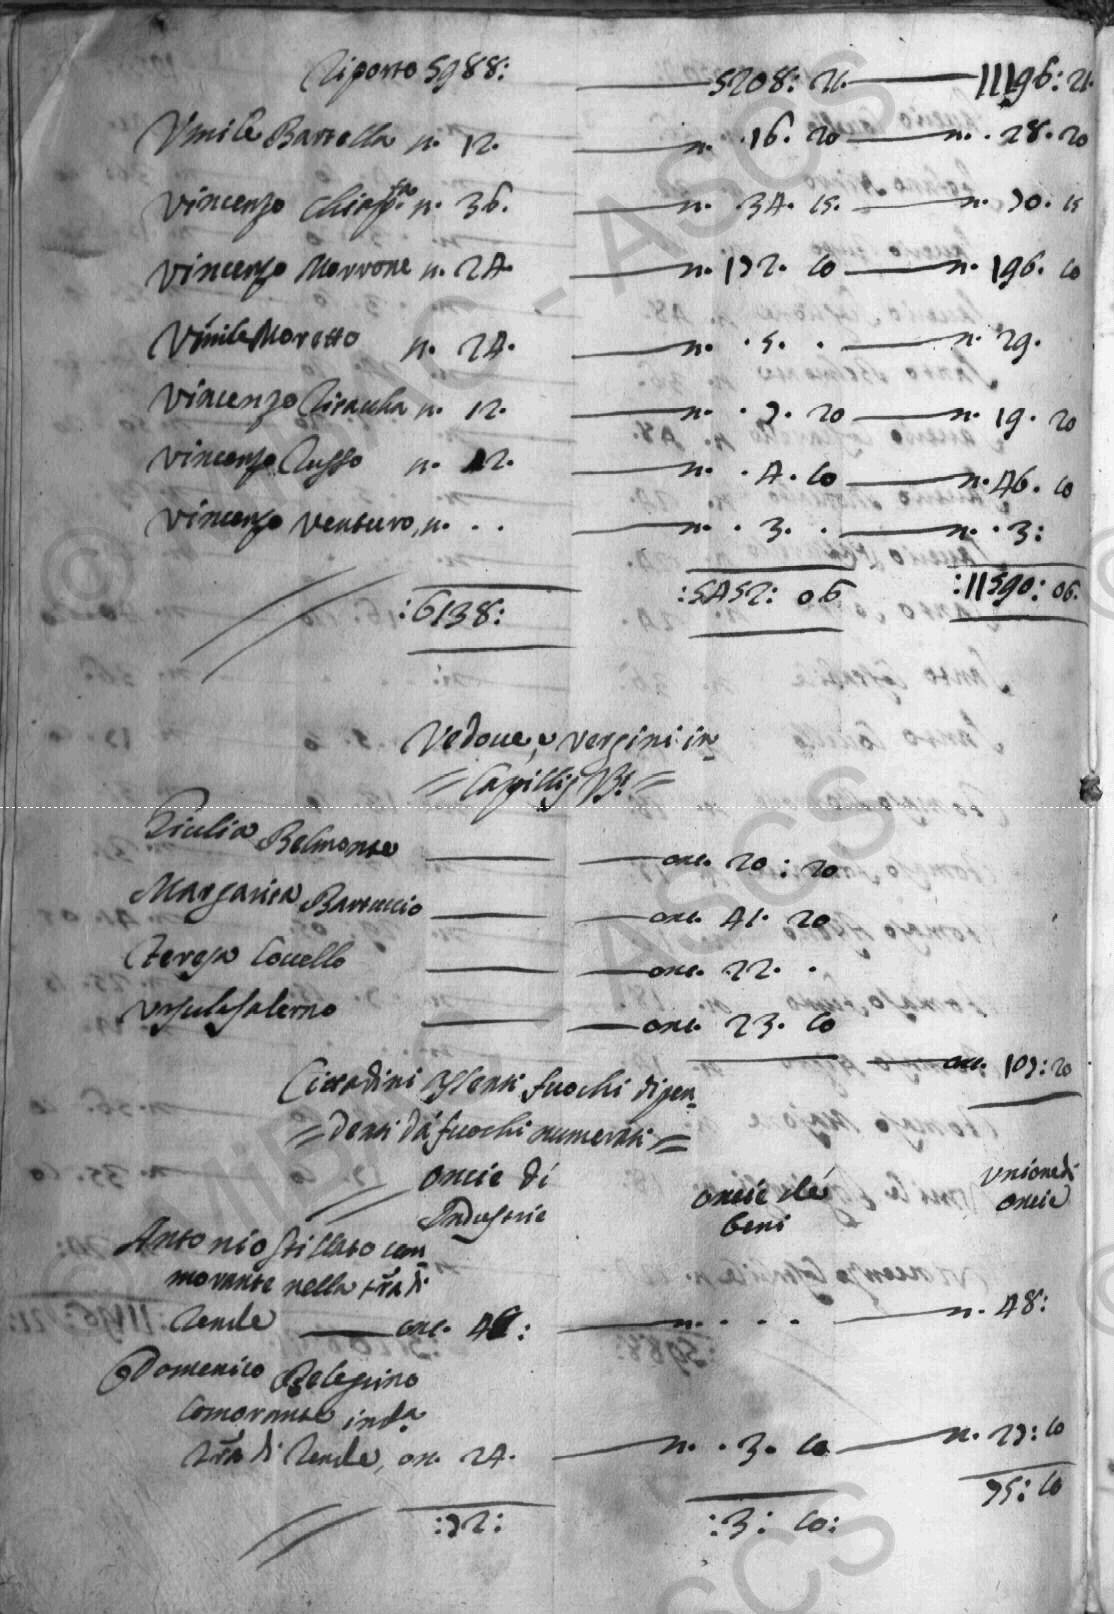 Riporto 5988: 5208: 21. 11196: 21.
Vinile Barrella n. 12. n. 16. 20 n. 28. 20
Vincenzo n. 36. n. 34. 15. n. 70. 15
Vincenzo Morrone n. 24. n. 172. 10 n. 196. 10
Vinile Moretto n. 24. n. 5. . n. 29.
Vincenzo n. 12. n. 7. 20 n. 19. 20
Vincenzo Russo n. 42. n. 4. 10 n. 46. 10
Vincenzo Venturo, n. . . n. 3. . n. 3:
:6138: :5452: 06 :11590: 06.
Vedove, e vergini in
Capillis
Giulia Belmonte onc. 20: 20
Margarita Bartuccio onc. 41. 20
Teresa Coccello onc. 22. .
Ursula Salerno onc. 23. 10
onc. 107: 20
Cittadini assenti fuochi dipen
denti da fuochi numerati
oncie di oncie de Unione di
Industrie beni oncie
Antonio Stillato com
morante nella t̄ra di
Rende onc. 48: n. . . . n. 48:
Domenico Pelegrino
Comorante in d.a
t̄ra di Rende, on. 24. n. 3. 10 n. 27: 10
:72: :3: 10: 75: 10
© MiBAC - ASCS
© MiBAC - ASCS